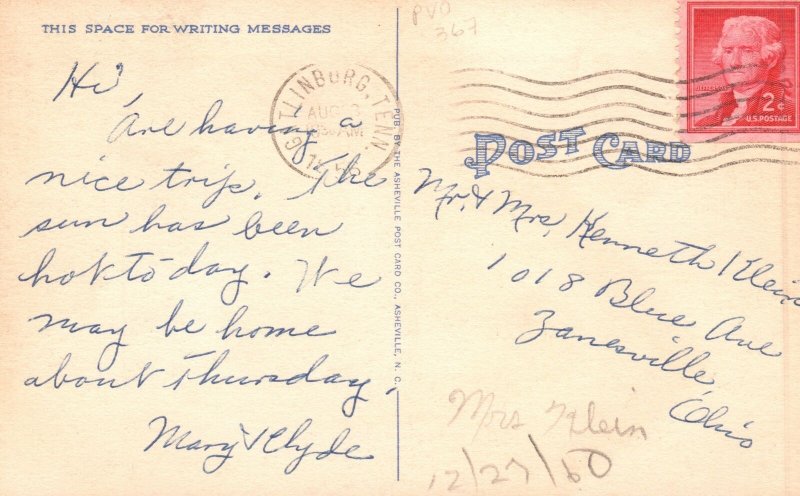 THIS SPACE FOR WRITING MESSAGES
Hi,
Are having a
nice trip. The
sun has been
hot to day. We
may be home
about Thursday.
Mary & Clyde
GATLINBURG, TENN.
AUG
PUB. BY THE ASHEVILLE POST CARD CO., ASHEVILLE, N. C.
PVO
367
2¢
U.S. POSTAGE
POST CARD
Mr. & Mrs. Kenneth Klein
1018 Blue Ave
Zanesville,
Ohio
Mrs Klein
12/27/60